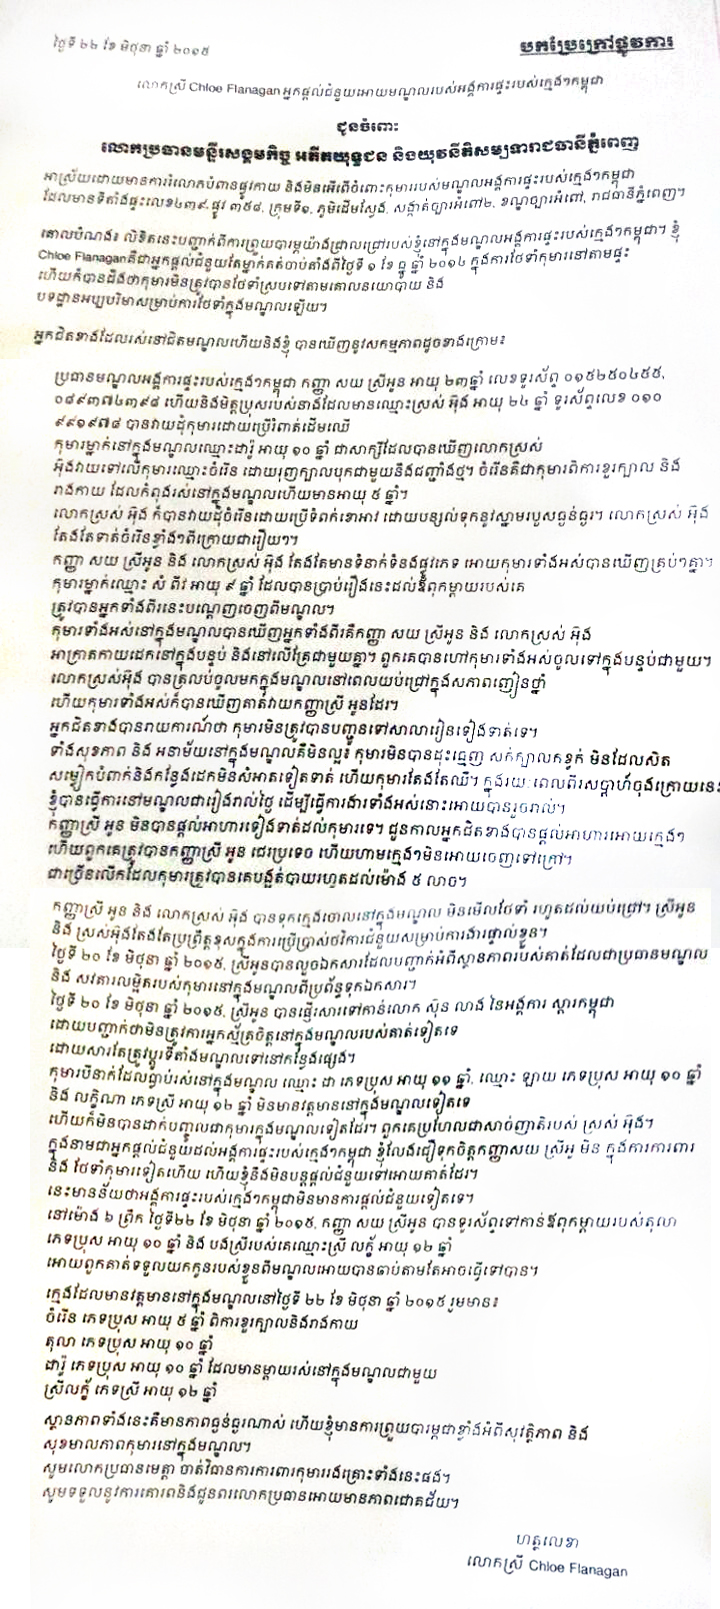 ថ្ងៃទី ២២ ខែ មិថុនា ឆ្នាំ ២០១៥
បកប្រែក្រៅផ្លូវការ
លោកស្រី Chloe Flanagan អ្នកផ្តល់ជំនួយអោយមណ្ឌលរបស់អង្គការផ្ទះរបស់ក្មេងៗកម្ពុជា
ជូនចំពោះ
លោកប្រធានមន្ទីរសង្គមកិច្ច អតីតយុទ្ធជន និងយុវនីតិសម្បទារាជធានីភ្នំពេញ
អាស្រ័យដោយមានការរំលោភបំពានផ្លូវកាយ និងមិនអើពើចំពោះកុមាររបស់មណ្ឌលអង្គការផ្ទះរបស់ក្មេងៗកម្ពុជា
ដែលមានទីតាំងផ្ទះលេខ៤៣៩,ផ្លូវ ៣៥៨, ក្រុមទី១, ភូមិដើមស្លែង, សង្កាត់ច្បារអំពៅ២, ខណ្ឌច្បារអំពៅ, រាជធានីភ្នំពេញ។
គោលបំណង៖ លិខិតនេះបញ្ជាក់ពីការព្រួយបារម្ភយ៉ាងជ្រាលជ្រៅរបស់ខ្ញុំនៅក្នុងមណ្ឌលអង្គការផ្ទះរបស់ក្មេងៗកម្ពុជា។ ខ្ញុំ
Chloe Flanaganគឺជាអ្នកផ្តល់ជំនួយតែម្នាក់គត់ចាប់តាំងពីថ្ងៃទី ១ ខែ ធ្នូ ឆ្នាំ ២០១៤ ក្នុងការថែទាំកុមារនៅតាមផ្ទះ
ហើយក៏បានដឹងថាកុមារមិនត្រូវបានថែទាំស្របទៅតាមគោលនយោបាយ និង
បទដ្ឋានអប្បបរិមាសម្រាប់ការថែទាំក្នុងមណ្ឌលឡើយ។
អ្នកជិតខាងដែលរស់នៅជិតមណ្ឌលហើយនិងខ្ញុំ បានឃើញនូវសកម្មភាពដូចខាងក្រោម៖
ប្រធានមណ្ឌលអង្គការផ្ទះរបស់ក្មេងៗកម្ពុជា កញ្ញា សយ ស្រីអូន អាយុ ២៣ឆ្នាំ លេខទូរស័ព្ទ ០១៥២៥០៤៥៥,
០៨៩៣៧៤៣៩៨ ហើយនិងមិត្តប្រុសរបស់នាងដែលមានឈ្មោះស្រស់ អ៊ុង អាយុ ២៤ ឆ្នាំ ទូរស័ព្ទលេខ ០១០
៩៩១៩៧៨ បានវាយដុំកុមារដោយប្រើរំពាត់ដើមឈើ
កុមារម្នាក់នៅក្នុងមណ្ឌលឈ្មោះដារ៉ូ អាយុ ១០ ឆ្នាំ ជាសាក្សីដែលបានឃើញលោកស្រស់
អ៊ុងវាយទៅលើកុមារឈ្មោះចំរើន ដោយរុញក្បាលបុកជាមួយនឹងជញ្ជាំងថ្ម។ ចំរើនគឺជាកុមារពិការខួរក្បាល និង
រាងកាយ ដែលកំពុងរស់នៅក្នុងមណ្ឌលហើយមានអាយុ ៥ ឆ្នាំ។
លោកស្រស់ អ៊ុង ក៏បានវាយដុំចំរើនដោយប្រើទំពក់ខោអាវ ដោយបន្សល់ទុកនូវស្នាមរបួសធ្ងន់ធ្ងរ។ លោកស្រស់ អ៊ុង
តែងតែទាត់ចំរើនខ្លាំងៗពីក្រោយជារឿយៗ។
កញ្ញា សយ ស្រីអូន និង លោកស្រស់ អ៊ុង តែងតែមានទំនាក់ទំនងផ្លូវភេទ អោយកុមារទាំងអស់បានឃើញគ្រប់ៗគ្នា។
កុមារម្នាក់ឈ្មោះ សំ ពីវ អាយុ ៩ ឆ្នាំ ដែលបានប្រាប់រឿងនេះដល់ឪពុកម្តាយរបស់គេ
ត្រូវបានអ្នកទាំងពីរនេះបណ្តេញចេញពីមណ្ឌល។
កុមារទាំងអស់នៅក្នុងមណ្ឌលបានឃើញអ្នកទាំងពីរគឺកញ្ញា សយ ស្រីអូន និង លោកស្រស់ អ៊ុង
អាក្រាតកាយដេកនៅក្នុងបន្ទប់ និងនៅលើគ្រែជាមួយគ្នា។ ពួកគេបានហៅកុមារទាំងអស់ចូលទៅក្នុងបន្ទប់ជាមួយ។
លោកស្រស់អ៊ុង បានត្រលប់ចូលមកក្នុងមណ្ឌលនៅពេលយប់ជ្រៅក្នុងសភាពញៀនថ្នាំ
ហើយកុមារទាំងអស់ក៏បានឃើញគាត់វាយកញ្ញាស្រី អូនដែរ។
អ្នកជិតខាងបានរាយការណ៍ថា កុមារមិនត្រូវបានបញ្ជូនទៅសាលារៀនទៀងទាត់ទេ។
ទាំងសុខភាព និង អនាម័យនៅក្នុងមណ្ឌលគឺមិនល្អ៖ កុមារមិនបានដុះធ្មេញ សក់ក្បាលកខ្វក់ មិនដែលសិត
សម្លៀកបំពាក់និងកន្លែងដេកមិនសំអាតទៀតទាត់ ហើយកុមារតែងតែឈឺ។ ក្នុងរយៈពេលពីរសប្តាហ៍ចុងក្រោយនេះ
ខ្ញុំបានធ្វើការនៅមណ្ឌលជារៀងរាល់ថ្ងៃ ដើម្បីធ្វើការងារទាំងអស់នោះអោយបានរួចរាល់។
កញ្ញាស្រី អូន មិនបានផ្តល់អាហារទៀងទាត់ដល់កុមារទេ។ ជួនកាលអ្នកជិតខាងបានផ្តល់អាហារអោយក្មេងៗ
ហើយពួកគេត្រូវបានកញ្ញាស្រី អូន ជេរប្រទេច ហើយហាមក្មេងៗមិនអោយចេញទៅក្រៅ។
ជាច្រើនលើកដែលកុមារត្រូវបានគេបង្អត់បាយរហូតដល់ម៉ោង ៥ លាច។
កញ្ញាស្រី អូន និង លោកស្រស់ អ៊ុង បានទុកក្មេងចោលនៅក្នុងមណ្ឌល មិនមើលថែទាំ រហូតដល់យប់ជ្រៅ។ ស្រីអូន
និង ស្រស់អ៊ុងតែងតែប្រព្រឹត្តខុសក្នុងការប្រើប្រាស់ថវិកាជំនួយសម្រាប់ការងារផ្ទាល់ខ្លួន។
ថ្ងៃទី ២០ ខែ មិថុនា ឆ្នាំ ២០១៥, ស្រីអូនបានលួចឯកសារដែលបញ្ជាក់អំពីស្ថានភាពរបស់គាត់ដែលជាប្រធានមណ្ឌល
និង សវតារលម្អិតរបស់កុមារនៅក្នុងមណ្ឌលពីប្រព័ន្ធទុកឯកសារ។
ថ្ងៃទី ២០ ខែ មិថុនា ឆ្នាំ ២០១៥, ស្រីអូន បានផ្ញើរសារទៅកាន់លោក ស៊ុន លាង នៃអង្គការ ស្តារកម្ពុជា
ដោយបញ្ជាក់ថាមិនត្រូវការអ្នកស្ម័គ្រចិត្តនៅក្នុងមណ្ឌលរបស់គាត់ទៀតទេ
ដោយសារតែត្រូវប្តូរទីតាំងមណ្ឌលទៅនៅកន្លែងផ្សេង។
កុមារបីនាក់ដែលធ្លាប់រស់នៅក្នុងមណ្ឌល ឈ្មោះ ដា ភេទប្រុស អាយុ ១១ ឆ្នាំ, ឈ្មោះ ឡាយ ភេទប្រុស អាយុ ១០ ឆ្នាំ
និង លក្ខិណា ភេទស្រី អាយុ ១២ ឆ្នាំ មិនមានវត្តមាននៅក្នុងមណ្ឌលទៀតទេ
ហើយក៏មិនបានដាក់បញ្ចូលជាកុមារក្នុងមណ្ឌលទៀតដែរ។ ពួកគេប្រហែលជាសាច់ញាតិរបស់ ស្រស់ អ៊ុង។
ក្នុងនាមជាអ្នកផ្តល់ជំនួយដល់អង្គការផ្ទះរបស់ក្មេងៗកម្ពុជា ខ្ញុំលែងជឿទុកចិត្តកញ្ញាសយ ស្រីអូ មិន ក្នុងការការពារ
និង ថែទាំកុមារទៀតហើយ ហើយខ្ញុំនឹងមិនបន្តផ្តល់ជំនួយទៅអោយគាត់ដែរ។
នេះមានន័យថាអង្គការផ្ទះរបស់ក្មេងៗកម្ពុជាមិនមានការផ្តល់ជំនួយទៀតទេ។
នៅម៉ោង ៦ ព្រឹក ថ្ងៃទី២២ ខែ មិថុនា ឆ្នាំ ២០១៥, កញ្ញា សយ ស្រីអូន បានទូរស័ព្ទទៅកាន់ឪពុកម្តាយរបស់តុលា
ភេទប្រុស អាយុ ១០ ឆ្នាំ និង បងស្រីរបស់គេឈ្មោះស្រី លក្ខ័ អាយុ ១២ ឆ្នាំ
អោយពួកគាត់ទទួលយកកូនរបស់ខ្លួនពីមណ្ឌលអោយបានឆាប់តាមតែអាចធ្វើទៅបាន។
ក្មេងដែលមានវត្តមាននៅក្នុងមណ្ឌលនៅថ្ងៃទី ២២ ខែ មិថុនា ឆ្នាំ ២០១៥ រួមមាន៖
ចំរើន ភេទប្រុស អាយុ ៥ ឆ្នាំ ពិការខួរក្បាលនិងរាងកាយ
តុលា ភេទប្រុស អាយុ ១០ ឆ្នាំ
ដារ៉ូ ភេទប្រុស អាយុ ១០ ឆ្នាំ ដែលមានម្តាយរស់នៅក្នុងមណ្ឌលជាមួយ
ស្រីលក្ខ័ ភេទស្រី អាយុ ១២ ឆ្នាំ
ស្ថានភាពទាំងនេះគឺមានភាពធ្ងន់ធ្ងរណាស់ ហើយខ្ញុំមានការព្រួយបារម្ភជាខ្លាំងអំពីសុវត្ថិភាព និង
សុខមាលភាពកុមារនៅក្នុងមណ្ឌល។
សូមលោកប្រធានមេត្តា ចាត់វិធានការការពារកុមាររងគ្រោះទាំងនេះផង។
សូមទទួលនូវការគោរពនិងជូនពរលោកប្រធានអោយមានភាពជោគជ័យ។
ហត្ថលេខា
លោកស្រី Chloe Flanagan